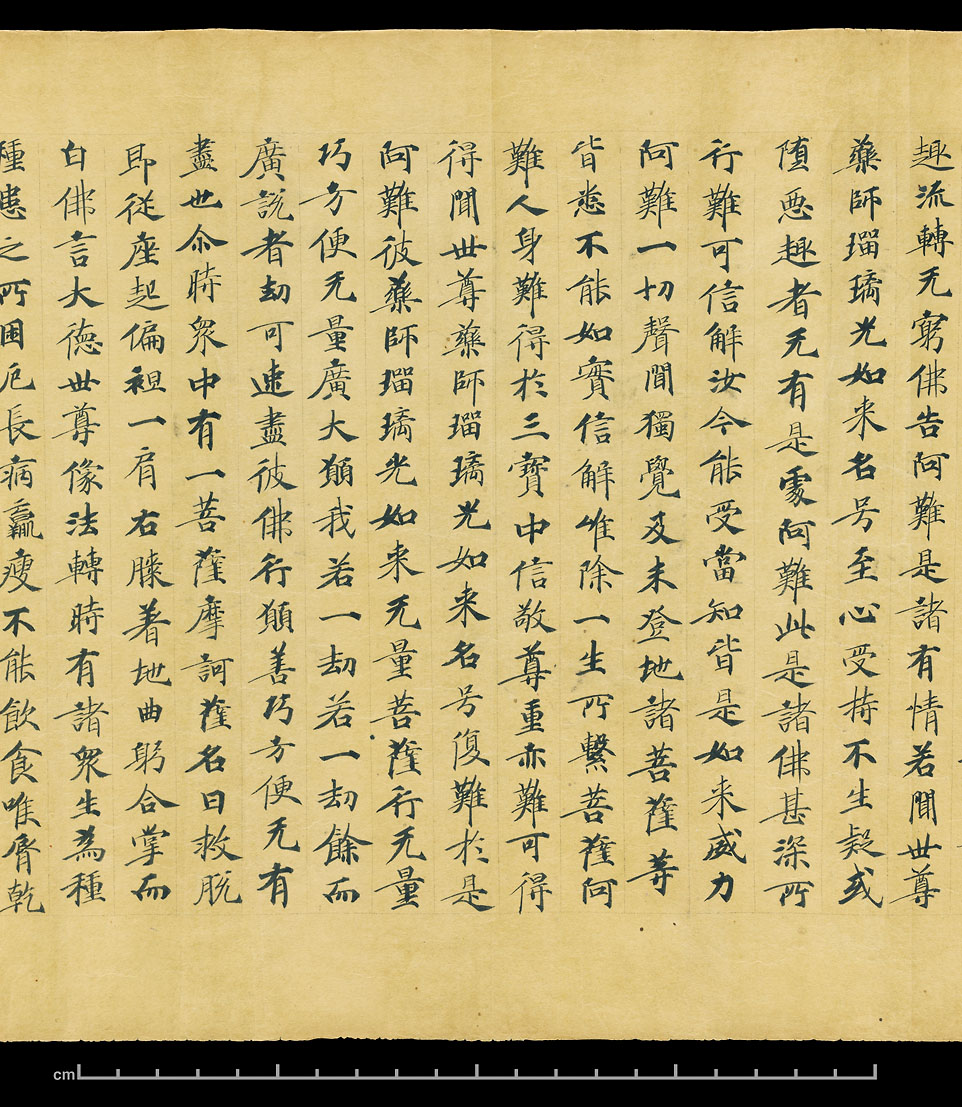 趣流轉无窮佛告阿難是諸有情若聞世尊
藥師瑠璃光如来名号至心受持不生疑或
堕惡趣者无有是處阿難此是諸佛甚深所
行難可信解汝今能受當知皆是如来威力
阿難一切聲聞獨覺及未登地諸菩薩等
皆悉不能如實信解唯除一生所繫菩薩阿
難人身難得於三寶中信敬尊重亦難可得
得聞世尊藥師瑠璃光如来名号復難於是
阿難彼藥師瑠璃光如来无量菩薩行无量
巧方便无量廣大願我若一劫若一劫餘而
廣說者劫可速盡彼佛行願善巧方便无有
盡也尒時衆中有一菩薩摩訶薩名曰救脱
即從座起偏袒一肩右膝著地曲躬合掌而
白佛言大德世尊像法轉時有諸衆生為種
種患之所困厄長病羸瘦不能飲食喉脣乾
cm